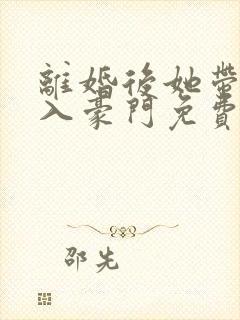 離婚後她帶
入豪門免費
邵先